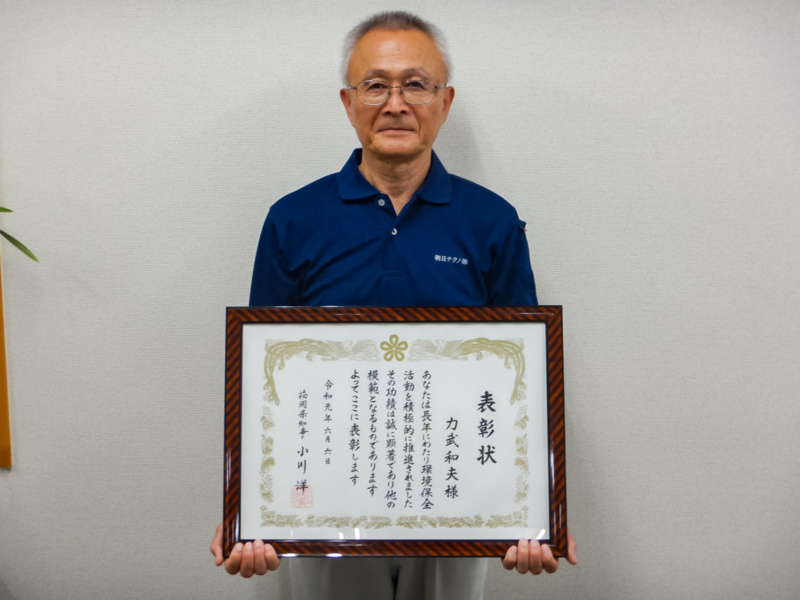 朝日テクノ㈱
表彰状
力武和夫様
あなたは長年にわたり環境保全
活動を積極的に推進されました
その功績は誠に顕著であり他の
模範となるものであります
よってここに表彰します
令和元年六月六日
福岡県知事 小川洋